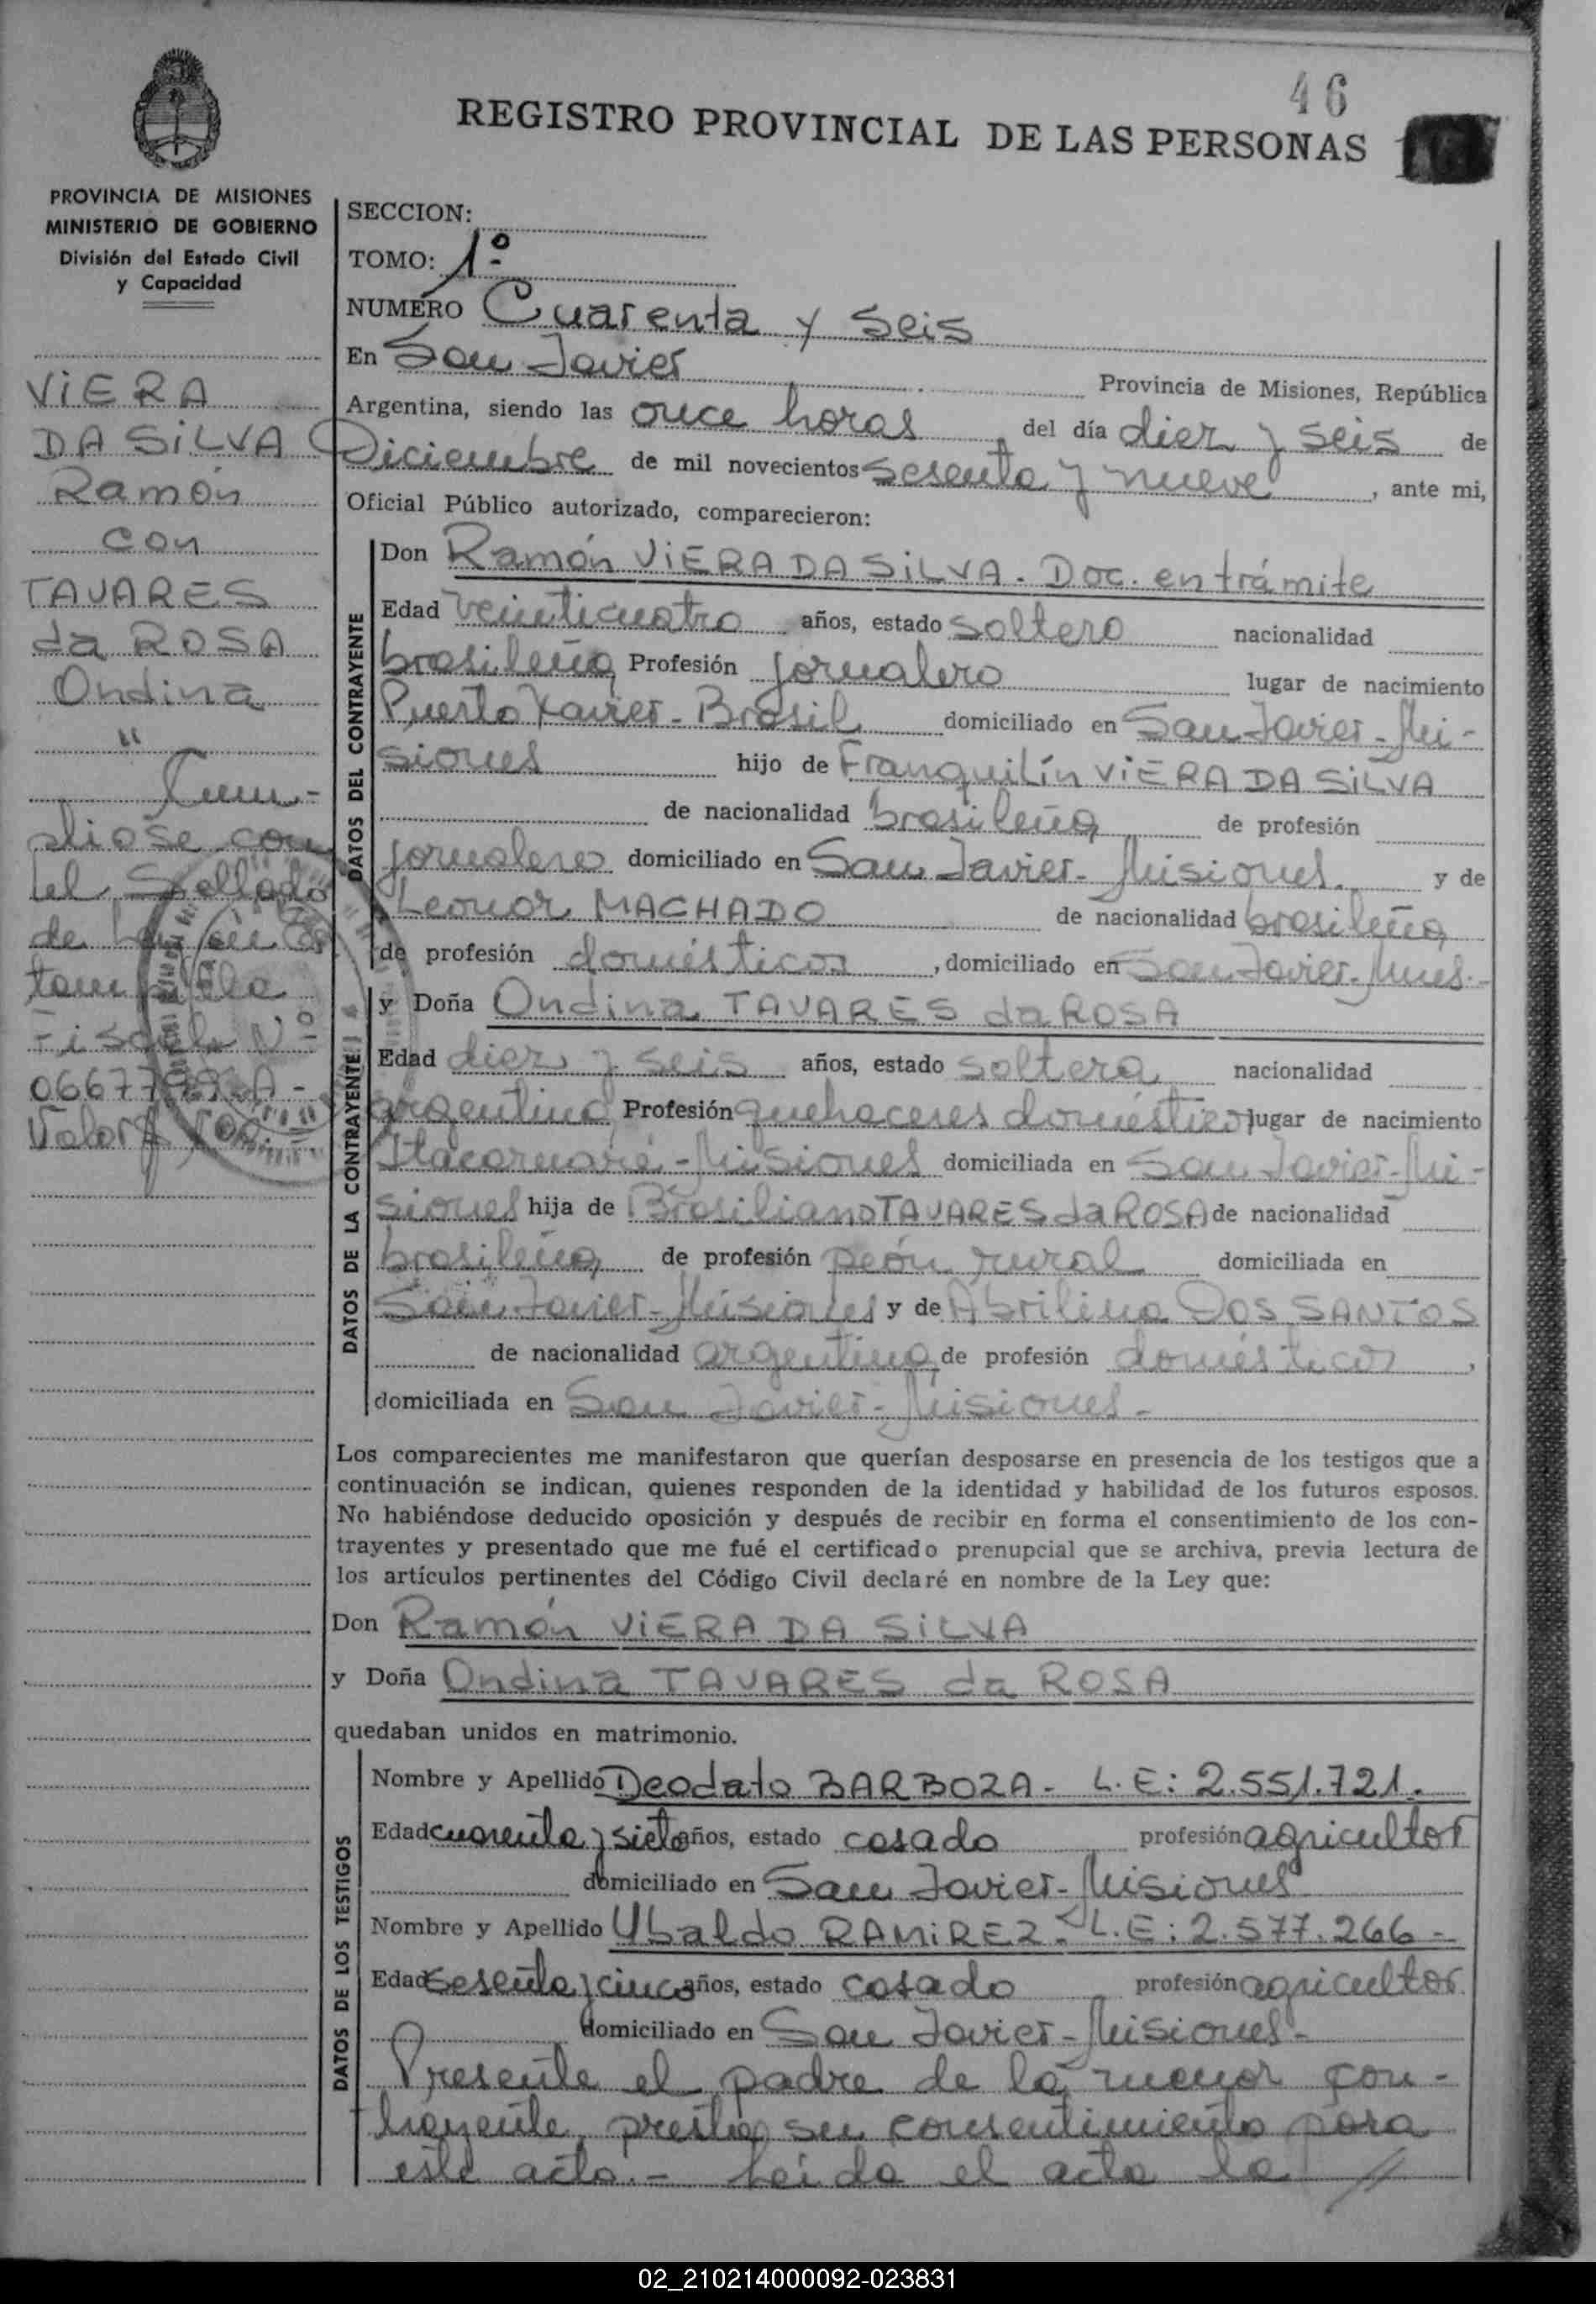 46
REGISTRO PROVINCIAL DE LAS PERSONAS
PROVINCIA DE MISIONES
MINISTERIO DE GOBIERNO
División del Estado Civil
y Capacidad
VIERA
DA SILVA
Ramón
con
TAVARES
da ROSA
Ondina
"
Cum-
pliose con
el Sellado
de Ley en
Fiscal Nº
Valor
SECCION:
TOMO: 1º
NUMERO Cuarenta y seis
En San Javier Provincia de Misiones, República
Argentina, siendo las once horas del día diez y seis de
Diciembre de mil novecientos sesenta y nueve, ante mi,
Oficial Público autorizado, comparecieron:
DATOS DEL CONTRAYENTE
Don Ramón VIERA DA SILVA. Doc. en trámite
Edad veinticuatro años, estado soltero nacionalidad
brasileña Profesión jornalero lugar de nacimiento
Puerto Xavier - Brasil domiciliado en San Javier - Mi-
siones hijo de Franquilín VIERA DA SILVA
de nacionalidad brasileña de profesión
jornalero domiciliado en San Javier - Misiones. y de
Leonor MACHADO de nacionalidad brasileña
de profesión domésticos, domiciliado en San Javier - Mnes.-
DATOS DE LA CONTRAYENTE
y Doña Ondina TAVARES da ROSA
Edad diez y seis años, estado soltera nacionalidad
argentina Profesión quehaceres domésticos lugar de nacimiento
Itacaruaré - Misiones domiciliada en San Javier - Mi-
siones hija de Brasiliano TAVARES da ROSA de nacionalidad
brasileña de profesión peón rural domiciliada en
San Javier - Misiones y de Abrilina DOS SANTOS
de nacionalidad argentina de profesión domésticos,
domiciliada en San Javier - Misiones.-
Los comparecientes me manifestaron que querían desposarse en presencia de los testigos que a
continuación se indican, quienes responden de la identidad y habilidad de los futuros esposos.
No habiéndose deducido oposición y después de recibir en forma el consentimiento de los con-
trayentes y presentado que me fué el certificado prenupcial que se archiva, previa lectura de
los artículos pertinentes del Código Civil declaré en nombre de la Ley que:
Don Ramón VIERA DA SILVA
y Doña Ondina TAVARES da ROSA
quedaban unidos en matrimonio.
DATOS DE LOS TESTIGOS
Nombre y Apellido Deodato BARBOZA - L.E: 2.551.721.
Edad cuarenta y siete años, estado casado profesión agricultor
domiciliado en San Javier - Misiones
Nombre y Apellido Ubaldo RAMIREZ - L.E: 2.577.266 -
Edad sesenta y cinco años, estado casado profesión agricultor
domiciliado en San Javier - Misiones -
Presente el padre de la menor con-
trayente, presta su consentimiento para
este acto.- Leida el acta la //
02_210214000092-023831